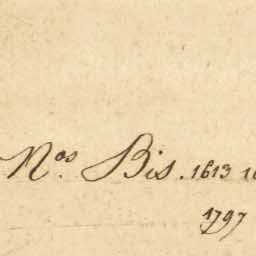 Nos. Bis. 1613 16
1797